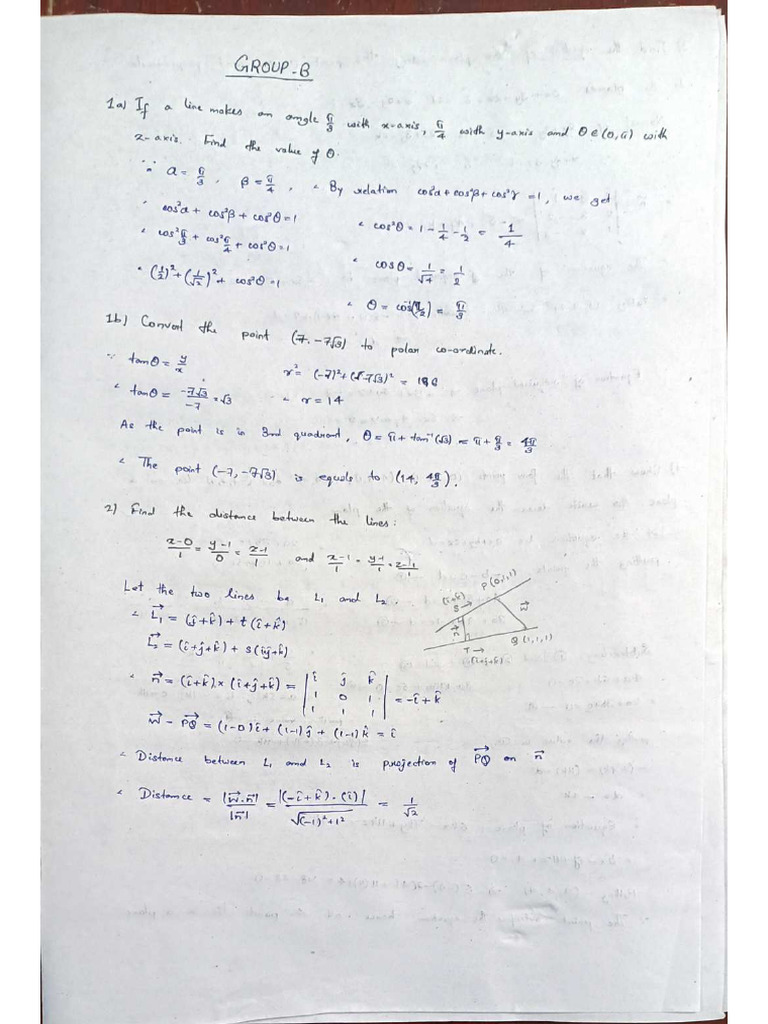 GROUP-B
1a) If a line makes an angle π/3 with x-axis, π/4 with y-axis and θ∈(0,π) with
z-axis. Find the value of θ.
∵ α = π/3, β = π/4, ∴ By relation cos²α + cos²β + cos²γ = 1, we get
∴ cos²α + cos²β + cos²θ = 1
∴ cos²π/3 + cos²π/4 + cos²θ = 1
∴ (1/2)² + (1/√2)² + cos²θ = 1
∴ cos²θ = 1 - 1/4 - 1/2 = 1/4
∴ cosθ = 1/√4 = 1/2
∴ θ = cos⁻¹(1/2) = π/3
1b) Convert the point (7, -7√3) to polar co-ordinate.
∵ tanθ = y/x
∴ tanθ = -7√3/-7 = √3
r² = (-7)² + (-7√3)² = 196
∴ r = 14
As the point is in 3rd quadrant, θ = π + tan⁻¹(√3) = π + π/3 = 4π/3
∴ The point (-7, -7√3) is equals to (14, 4π/3).
2) Find the distance between the lines:
x-0/1 = y-1/0 = z-1/1 and x-1/1 = y-1/1 = z-1/1
Let the two lines be L₁ and L₂.
∴ L₁ = (ĵ+k̂) + t(î+k̂)
L₂ = (î+ĵ+k̂) + s(îĵ+k̂)
P(0,1,1)
(î+k̂)
S →
w
n
Q (1,1,1)
T →
(î+ĵ+k̂)
∴ n = (î+k̂) × (î+ĵ+k̂) = | î ĵ k̂ | 1 0 1 | 1 1 1 | = -î+k̂
w = PQ = (1-0)î + (1-1)ĵ + (1-1)k̂ = î
∴ Distance between L₁ and L₂ is projection of PQ on n
∴ Distance = |w·n|/|n| = |(-î+k̂)·(î)|/√(-1)²+1² = 1/√2